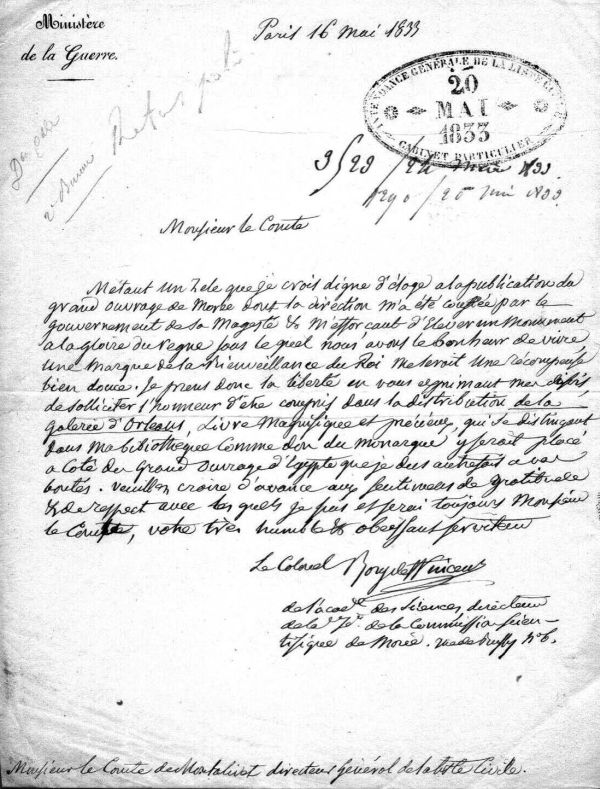 Ministère
de la Guerre.
Paris 16 mai 1833
INTENDANCE GÉNÉRALE DE LA LISTE CIVILE
20
MAI
1833
CABINET PARTICULIER
Refus poli
2e Bureau
Monsieur le Comte
Metant un Zele que je crois digne d'éloge a la publication du
grand ouvrage de Morée dont la direction m'a été confiée par le
gouvernement de sa Magesté & m'efforcant d'Elever un Monument
a la gloire du regne sous le quel nous avons le bonheur de vivre
une marque de la Bienveillance du Roi me seroit une récompense
bien douce. je prens donc la liberté en vous exprimant mes désirs
de solliciter l'honneur d'être compris dans la distribution de la
galerie d'Orleans, Livre Magnifique et précieux, qui se distinguant
dans ma bibliotheque comme don du monarque y seroit placé
a Coté du grand ouvrage d'Egypte que je dus autrefois a
bontés. veuillez croire d'avance aux sentimens de gratitude
& de respect avec les quels je suis et serai toujours Monsieur
le Comte, votre très humble & obeissant serviteur
Le Colonel Bory de St Vincent
de l'acad. des Sciences, directeur
de la de la Commission scien-
tifique de Morée. rue de No 6.
Monsieur le Comte de Montalivet directeur Général de la liste Civile.